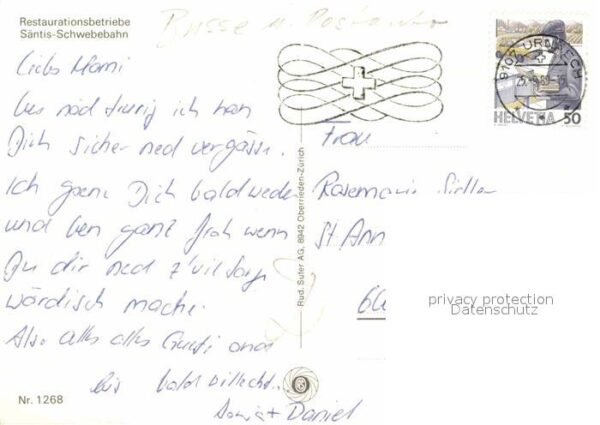 Restaurationsbetriebe
Säntis-Schwebebahn
Busse u. Postauto
Liebs Mami
bes nöd trurig ich han
Dich sicher ned vergässe.
Ich gseh Dich bald weder
und ben ganz froh wenn
Du dir ned z'vil Sorge
wördisch mache.
Also alles alles Gueti und
bis bald villecht...
Daniel
Nr. 1268
Rud. Suter AG, 8942 Oberrieden-Zürich
9107 URNÄSCH
HELVETIA 50
Frau
Rosemarie
St Ann
privacy protection
Datenschutz